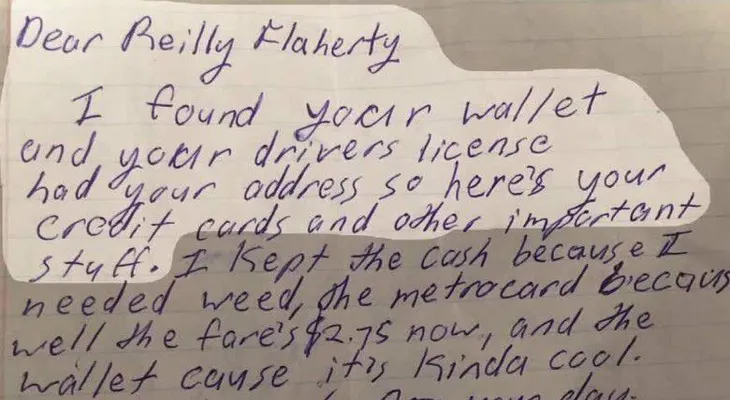 Dear Reilly Flaherty
I found your wallet
and your drivers license
had your address so here's your
credit cards and other important
stuff. I kept the cash because I
needed weed, the metrocard becaus
well the fare's $2.75 now, and the
wallet cause it's kinda cool.
your day.